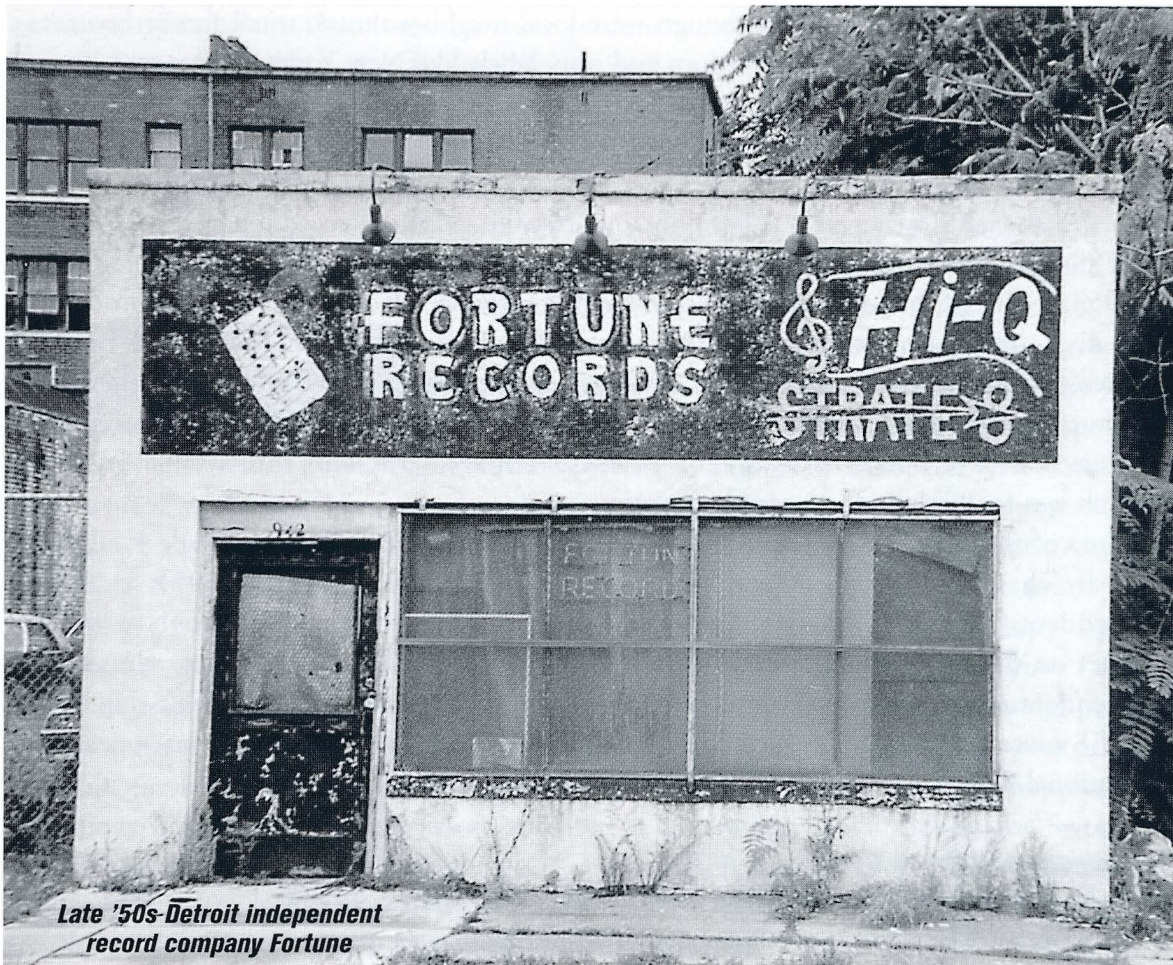 FORTUNE
RECORDS
Hi-Q
STRATE 8
942
FORTUN
RECORD
Late '50s Detroit independent
record company Fortune